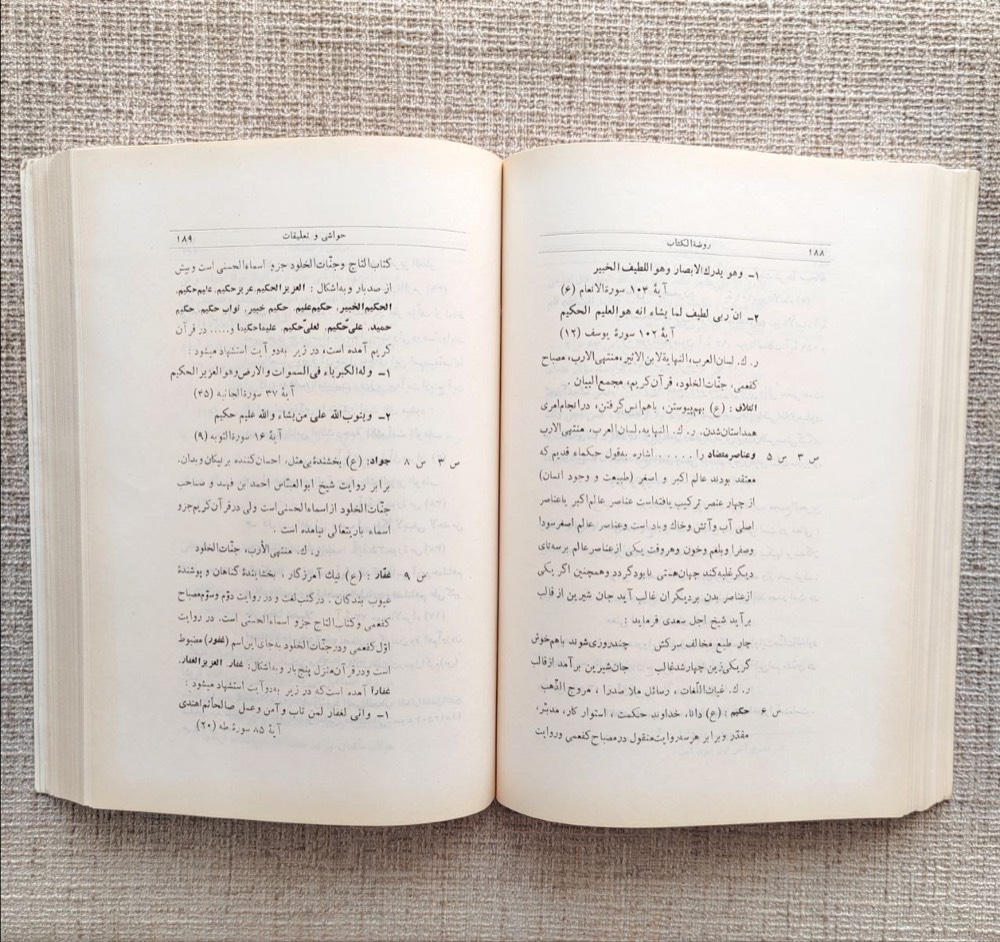 ۱۸۸
روضة‌الکتاب
۱- وهو یدرك الابصار وهو اللطیف الخبیر
آیهٔ ۱۰۳ سورة الانعام (۶)
۲- ان ربی لطیف لما یشاء انه هو العلیم الحکیم
آیهٔ ۱۰۲ سورهٔ یوسف (۱۲)
ر. ك. لسان العرب، النهایة لابن الاثیر، منتهی الارب، مصباح
کفعمی، جنّات الخلود، قرآن کریم، مجمع البیان .
ائتلاف : (ع) بهم پیوستن، باهم انس گرفتن، در انجام امری
همداستان شدن. ر. ك. النهایه، لسان العرب، منتهی الارب
ص ۳ س ۵ وعناصر متضاد را . . . . . اشاره به‌قول حکماء قدیم که
معتقد بودند عالم اکبر و اصغر (طبیعت و وجود انسان)
از چهار عنصر ترکیب یافته‌است عناصر عالم اکبر یاعناصر
اصلی آب و آتش و خاك و باد است و عناصر عالم اصغر سودا
وصفرا و بلغم و خون و هر وقت یکی از عناصر عالم بر سه تای
دیگر غلبه کند جهان هستی نابود گردد و همچنین اگر یکی
از عناصر بدن بر دیگران غالب آید جان شیرین از قالب
برآید شیخ اجل سعدی فرماید :
چار طبع مخالف سرکش چند روزی شوند باهم خوش
گر یکی زین چهار شد غالب جان شیرین برآمد از قالب
ر. ك. غیاث اللغات، رسائل ملا صدرا ، مروج الذّهب
س ۶ حکیم : (ع) دانا، خداوند حکمت ، استوار کار، مدبّر،
مقدّر و برابر هر سه روایت منقول در مصباح کفعمی و روایت
حواشی و تعلیقات
۱۸۹
کتاب التاج و جنّات الخلود جزو اسماء الحسنی است و بیش
از صد بار و به اشکال : العزیز الحکیم. عزیز حکیم. علیم حکیم.
الحکیم الخبیر. حکیم علیم. حکیم خبیر. تواب حکیم. حکیم
حمید. علیّ حکیم. لعلی حکیم. علیما حکیما و..... در قرآن
کریم آمده است، در زیر به‌دو آیت استشهاد میشود :
۱- وله الکبریاء فی السموات والارض وهو العزیز الحکیم
آیهٔ ۳۷ سورة الجاثیه (۴۵)
۲- ویتوب الله علی من یشاء والله علیم حکیم
آیهٔ ۱۶ سورة التوبه (۹)
ص ۳ س ۸ جواد: (ع) بخشندهٔ بی‌مثل، احسان کننده بر نیکان و بدان.
برابر روایت شیخ ابوالعبّاس احمد بن فهد و صاحب
جنّات الخلود از اسماء الحسنی است ولی در قرآن کریم جزو
اسماء باریتعالی نیامده است .
ر. ك. منتهی الأرب، جنّات الخلود
س ۹ غفّار : (ع) نیك آمرزگار ، بخشایندهٔ گناهان و پوشندهٔ
عیوب بندگان . در کتب لغت و در روایت دوّم و سوّم مصباح
کفعمی و کتاب التاج جزو اسماء الحسنی است. در روایت
اوّل کفعمی و در جنّات الخلود به‌جای این اسم (غفور) مضبوط
است و در قرآن منزل پنج بار و به اشکال: غفار. العزیز الغفار.
غفارا آمده است که در زیر به‌دو آیت استشهاد میشود :
۱- وانی لغفار لمن تاب وآمن وعمل صالحا ثم اهتدی
آیهٔ ۸۵ سورهٔ طه (۲۰)